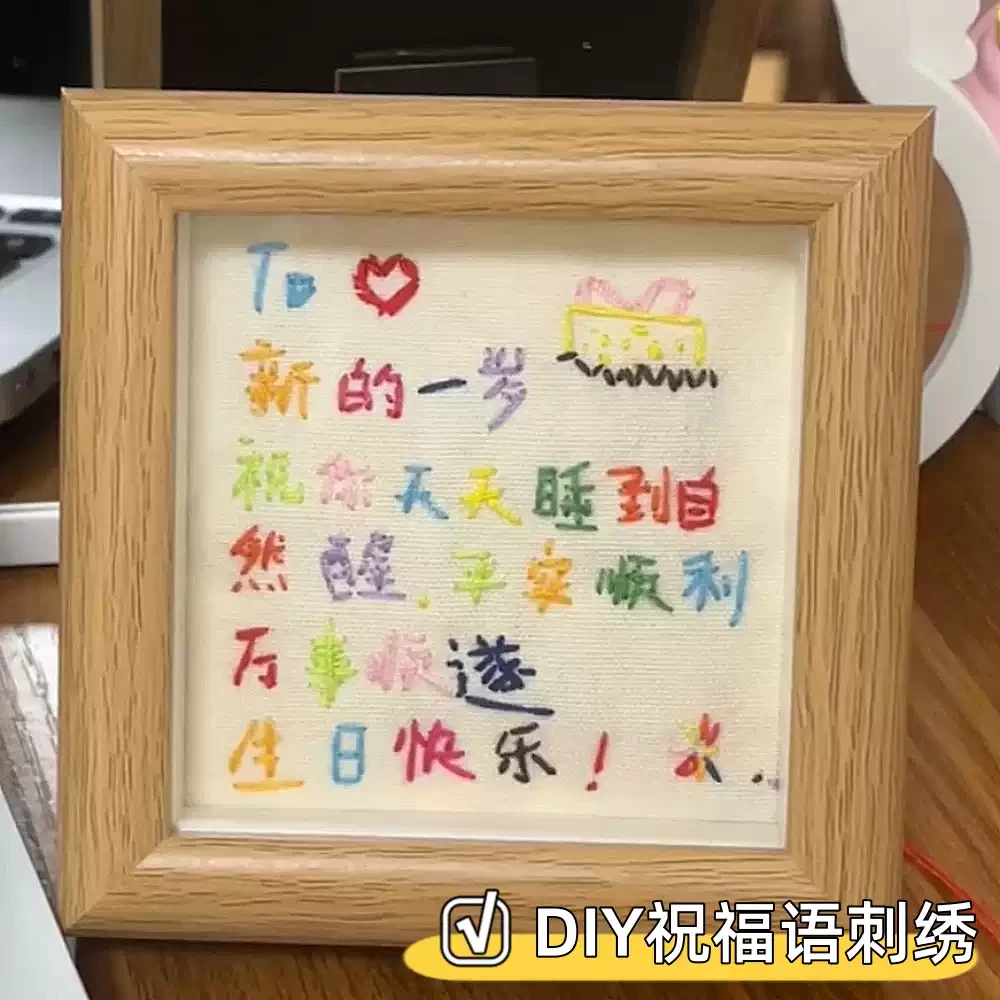 To
新的一岁
祝你天天睡到自
然醒.平安顺利
万事顺遂
生日快乐!
DIY祝福语刺绣